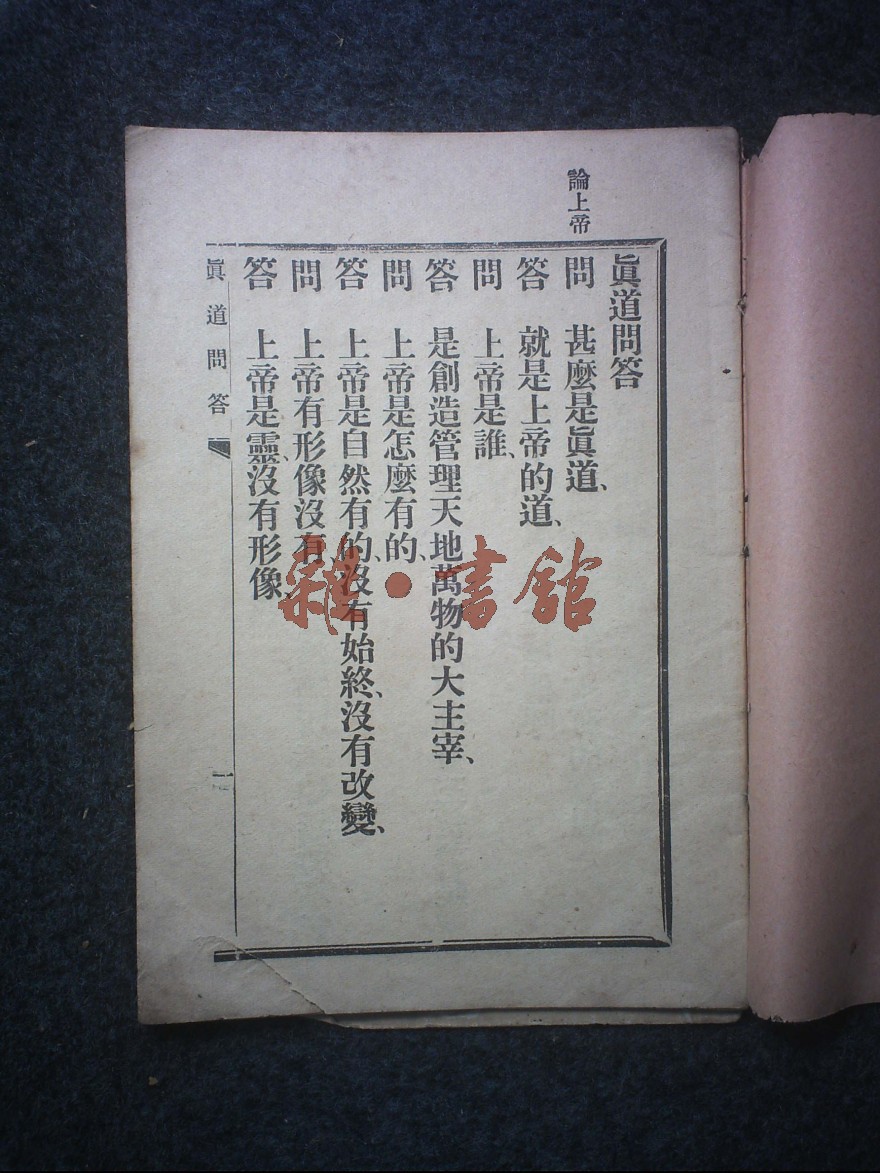 論上帝
眞道問答
問 甚麼是眞道、
答 就是上帝的道、
問 上帝是誰、
答 是創造管理天地萬物的大主宰、
問 上帝是怎麼有的、
答 上帝是自然有的、沒有始終、沒有改變、
問 上帝有形像沒有、
答 上帝是靈、沒有形像、
眞道問答
一
雜·書館